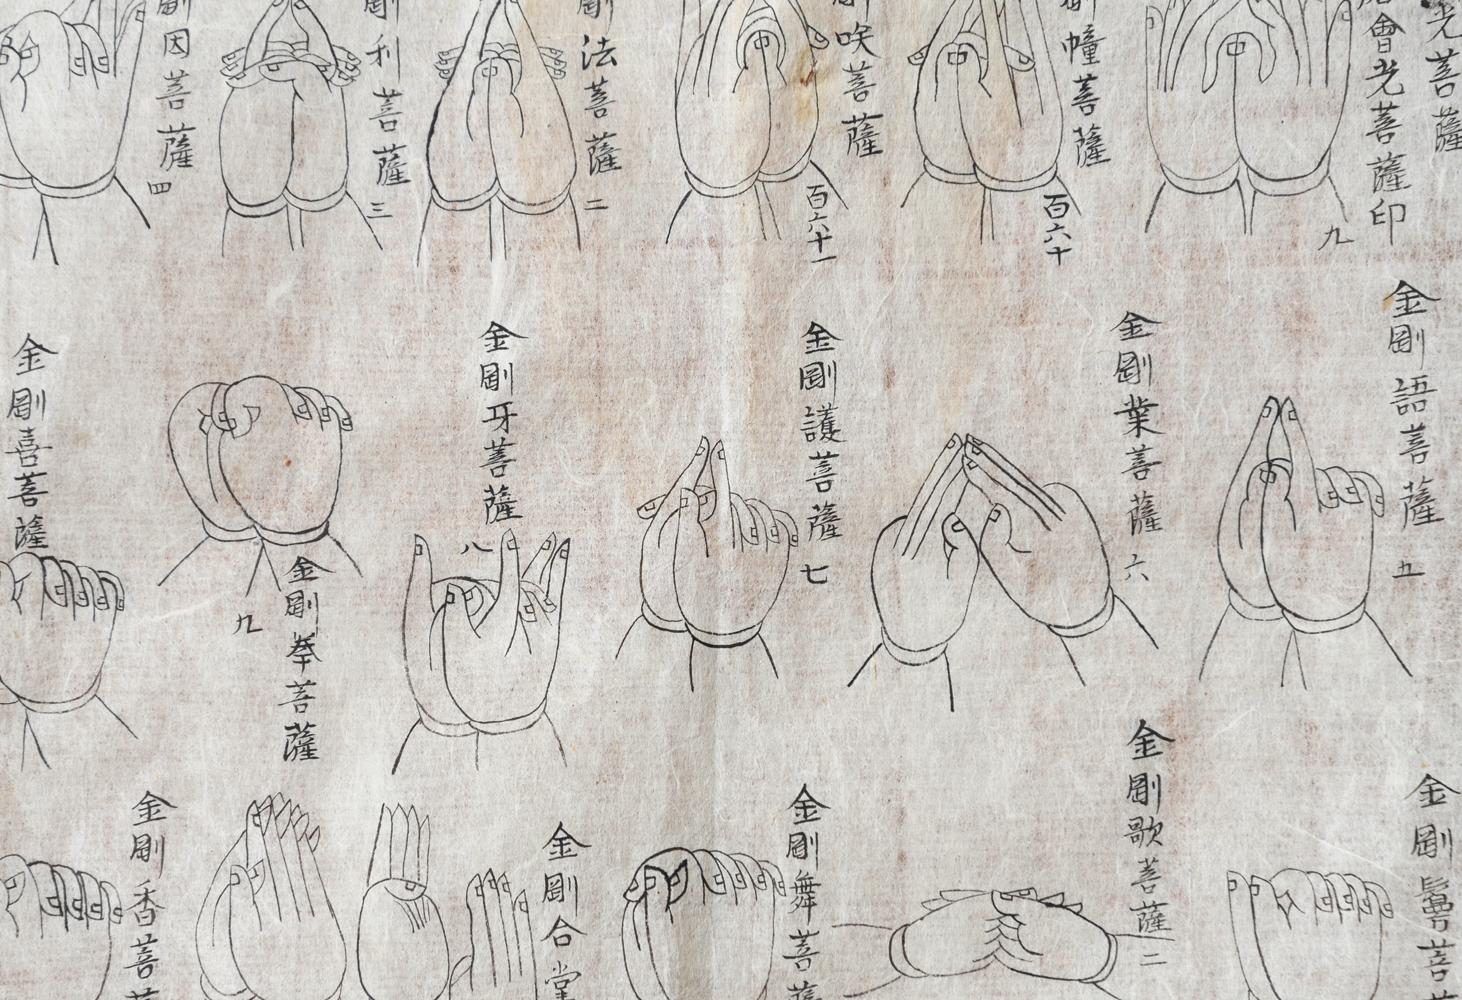 光菩薩
會光菩薩印
九
幢菩薩
百六十
咲菩薩
百六十一
法菩薩
二
利菩薩
三
剛因菩薩
四
金剛語菩薩
五
金剛業菩薩
六
金剛護菩薩
七
金剛牙菩薩
八
金剛拳菩薩
九
金剛喜菩薩
金剛鬘菩
金剛歌菩薩
二
金剛舞菩薩
金剛合掌
金剛香菩薩